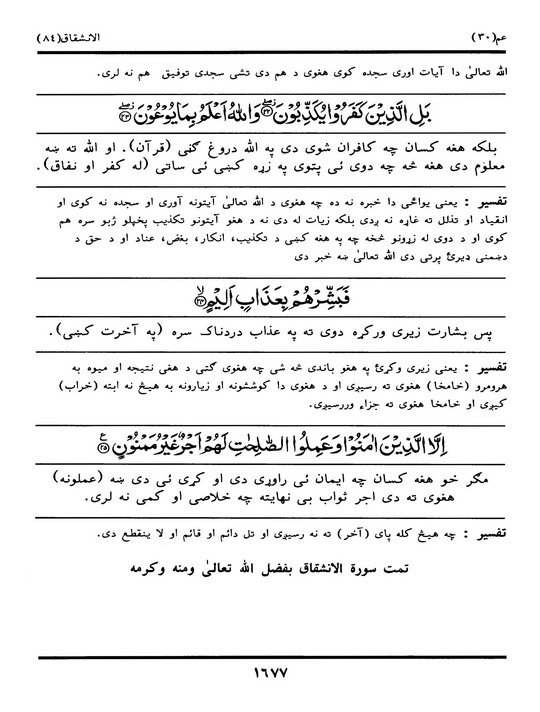 عم(٣٠)
الانشقاق(٨٤)
الله تعالیٰ دا آیات اوری سجده کوی هغوی د هم دی تشی سجدی توفیق هم نه لری.
بَلِ الَّذِيْنَ كَفَرُوْا يُكَذِّبُوْنَ ۖ وَاللّٰهُ اَعْلَمُ بِمَا يُوْعُوْنَ ۖ
بلکه هغه کسان چه کافران شوی دی په الله دروغ ګڼی (قرآن). او الله ته ښه
معلوم دی هغه څه چه دوی ئی پټوی په زړه کښی ئی ساتی (له کفر او نفاق).
تفسیر : یعنی یواځی دا خبره نه ده چه هغوی د الله تعالیٰ آیتونه آوری او سجده نه کوی او
انقیاد او تذلل ته غاړه نه ږدی بلکه زیات له دی نه د هغو آیتونو تکذیب پخپلو ژبو سره هم
کوی او د دوی له زړونو څخه چه په هغه کښی د تکذیب، انکار، بغض، عناد او د حق د
دښمنی ډیرئ پرتی دی الله تعالیٰ ښه خبر دی
فَبَشِّرْهُمْ بِعَذَابٍ اَلِيْمٍ ۙ
پس بشارت زیری ورکړه دوی ته په عذاب دردناک سره (په آخرت کښی).
تفسیر : یعنی زیری وکړئ په هغو باندی څه شی چه هغوی ګټی د هغی نتیجه او میوه به
هرومرو (خامخا) هغوی ته رسیږی او د هغوی دا کوششونه او زیارونه به هیڅ نه ابته (خراب)
کیږی او خامخا هغوی ته جزاء وررسیږی.
اِلَّا الَّذِيْنَ اٰمَنُوْا وَعَمِلُوا الصّٰلِحٰتِ لَهُمْ اَجْرٌ غَيْرُ مَمْنُوْنٍ
مګر خو هغه کسان چه ایمان ئی راوړی دی او کړی ئی دی ښه (عملونه)
هغوی ته دی اجر ثواب بی نهایته چه خلاصی او کمی نه لری.
تفسیر : چه هیڅ کله پای (آخر) ته نه رسیږی او تل دائم او قائم او لا ینقطع دی.
تمت سورة الانشقاق بفضل الله تعالیٰ ومنه وکرمه
١٦٧٧